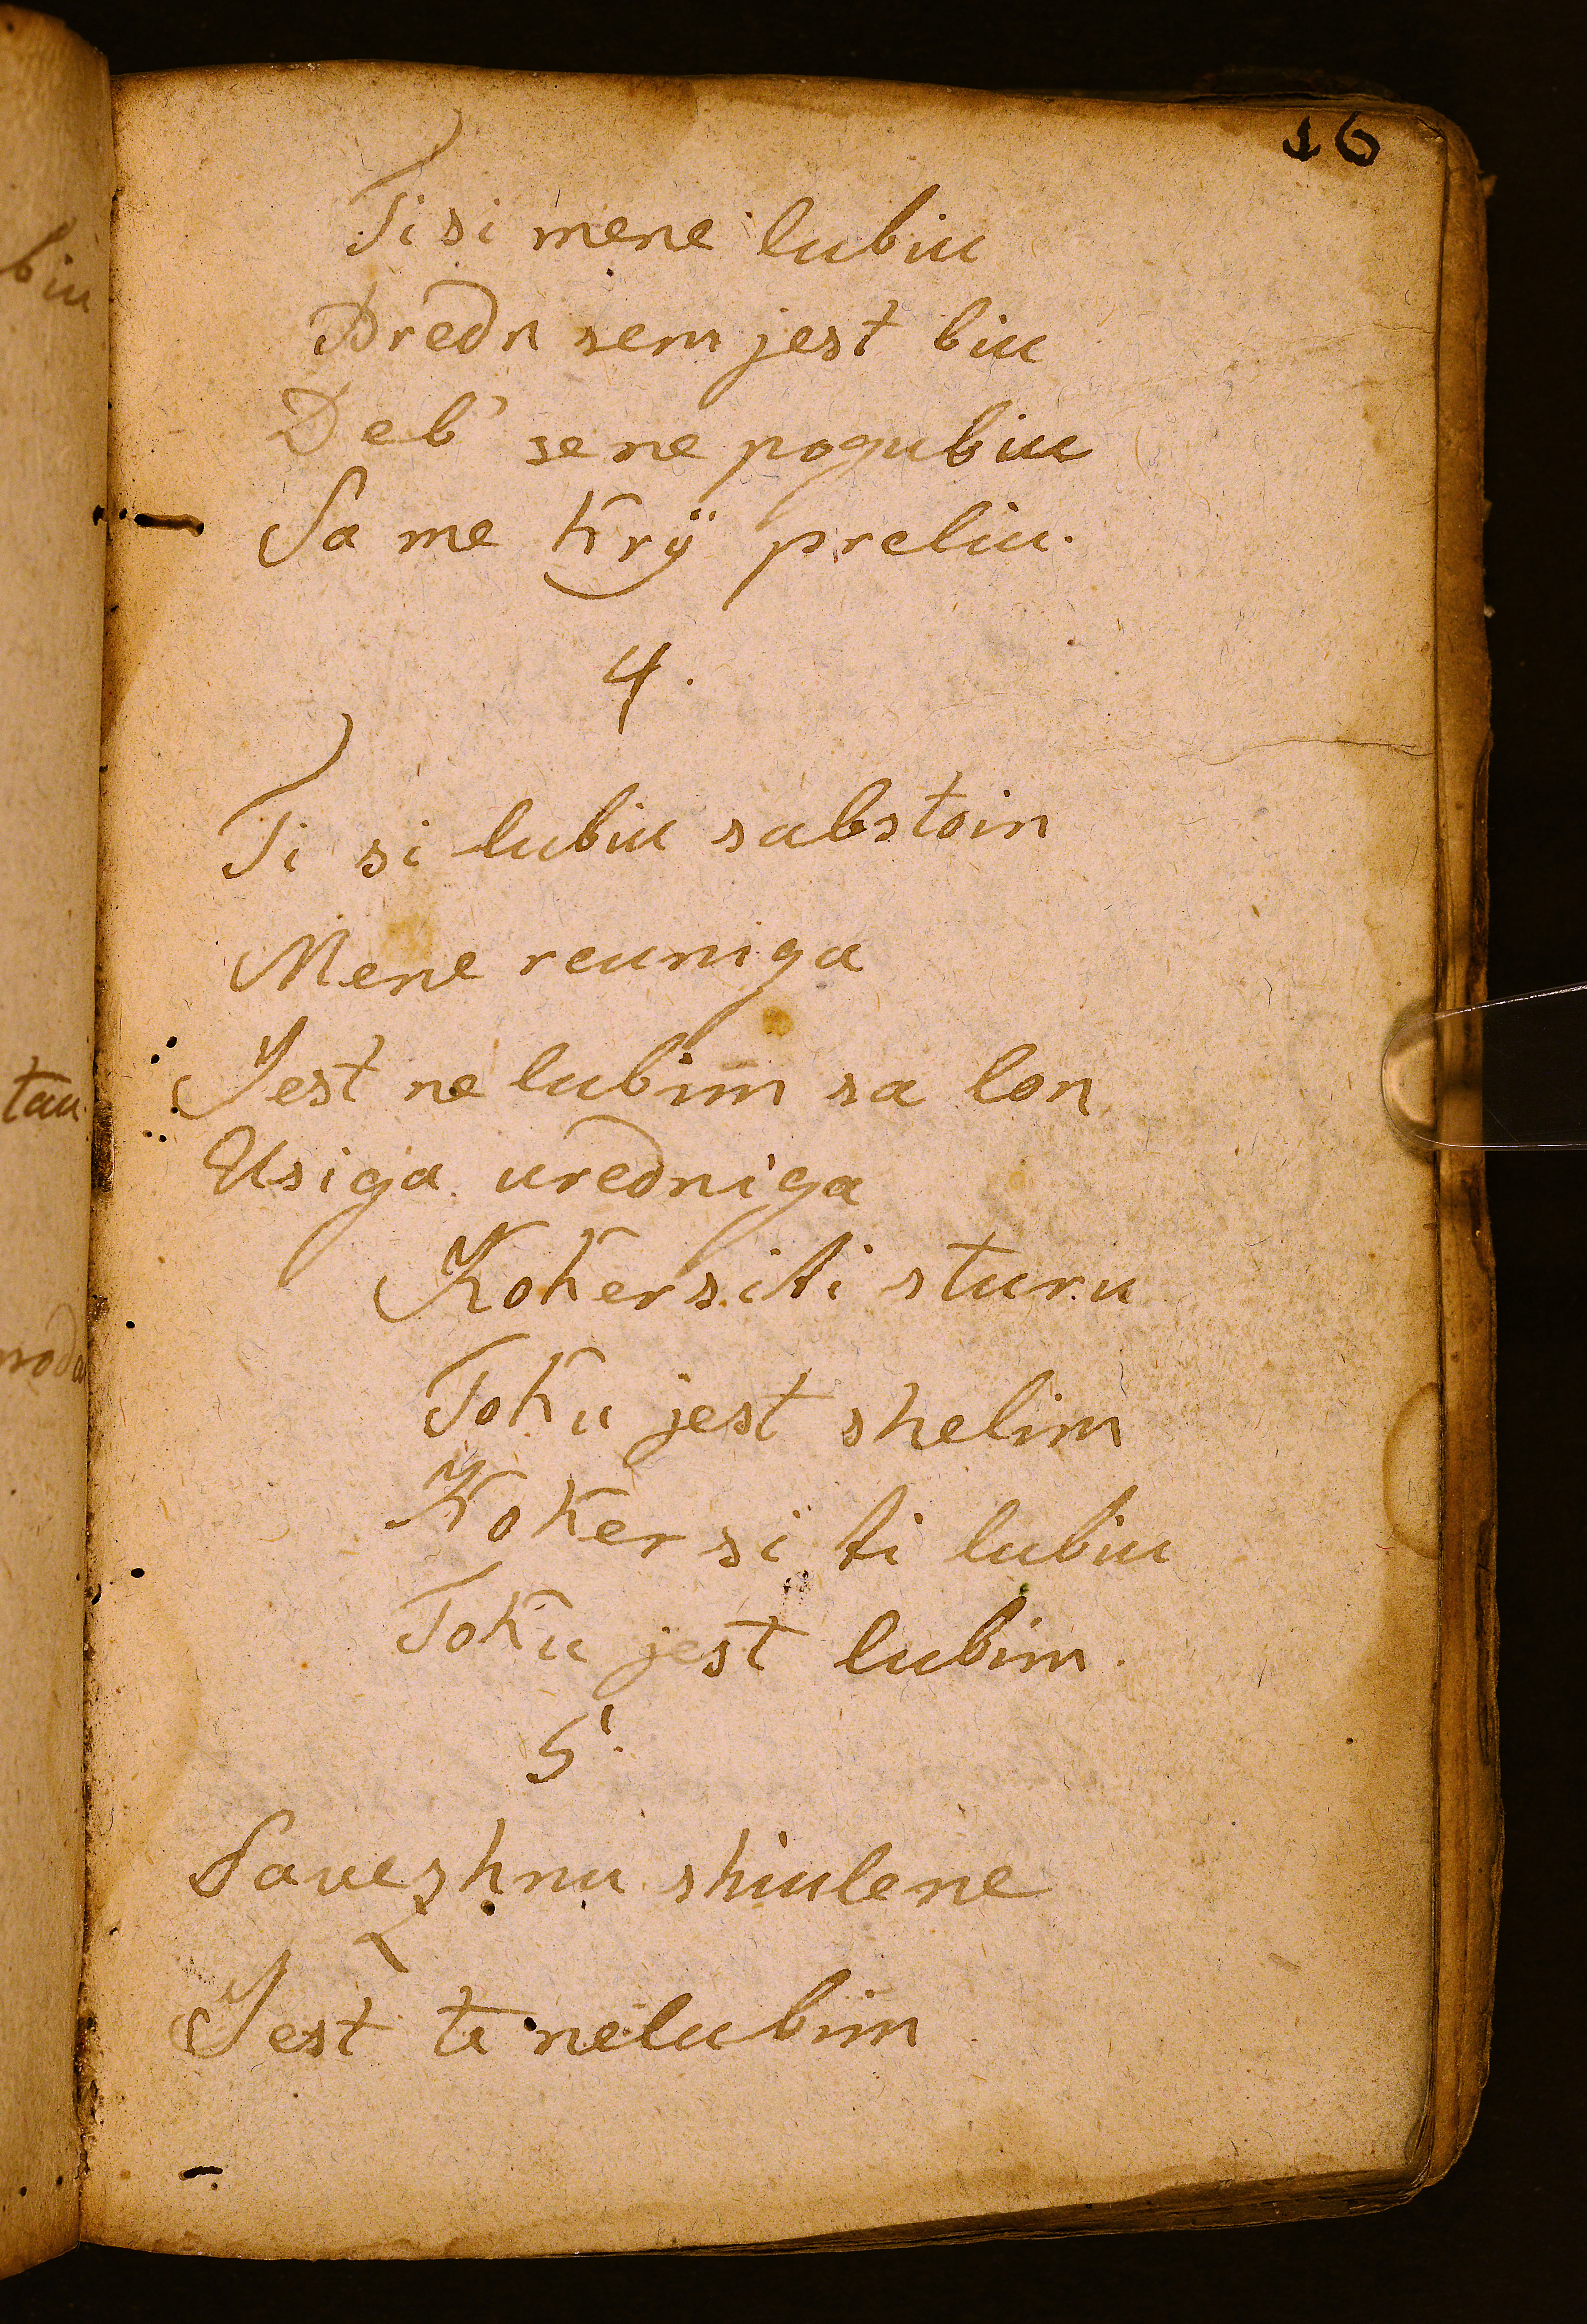 16
Ti si mene lubiu
Dredn sem jest biu
Deb' se ne pogubiu
Sa me Krÿ preliu.
4.
Ti si lubiu sabstoin
Mene reuniga
Jest ne lubim sa lon
Usiga uredniga
Koker si ti sturu
Toku jest shelim
Koker si ti lubiu
Toku jest lubim.
5.
Savezhnu shiulene
Jest te nelubim
biu
tau.